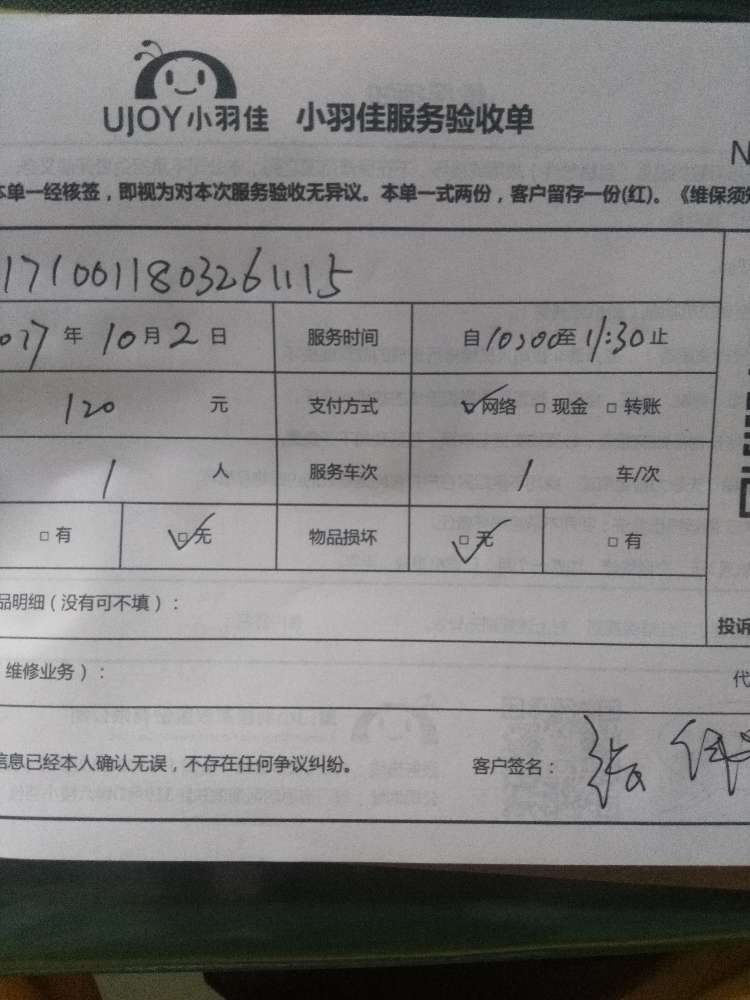 UJOY小羽佳 小羽佳服务验收单
N
本单一经核签，即视为对本次服务验收无异议。本单一式两份，客户留存一份(红)。《维保须知
1710011803261115
年 10月2日 服务时间 自10:00至11:30止
120 元 支付方式 ☑网络 □现金 □转账
1 人 服务车次 1 车/次
□有 ☑无 物品损坏 ☑无 □有
品明细（没有可不填）：
投诉
维修业务）：
代
信息已经本人确认无误，不存在任何争议纠纷。 客户签名：张